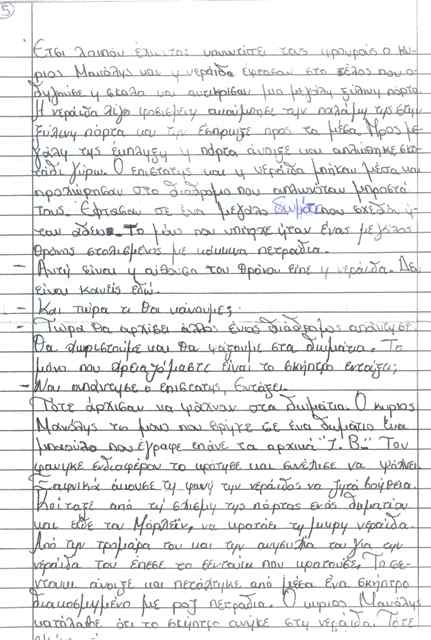 5
Έτσι λοιπόν έχωντας υπνωτίσει τους φρουρούς ο κύ-
ριος Μανώλης και η νεράιδα έφτασαν στο τέλος που ο-
δηγούσε η σκάλα και αντίκρισαν μια μεγάλη ξύλινη πόρτα.
Η νεράιδα λίγο φοβισμένη ακούμπησε την παλάμη της στην
ξύλινη πόρτα και την έσπρωξε προς τα μέσα. Προς με-
γάλη της έκπληξη η πόρτα άνοιξε και απλώθηκε σκο-
τάδι γύρω. Ο επιστάτης και η νεράιδα μπήκαν μέσα και
προχώρησαν στο διάδρομο που απλωνόταν μπροστά
τους. Έφτασαν σε ένα μεγάλο δωμάτιο που σχεδόν ή-
ταν άδειο. Το μόνο που υπήρχε ήταν ένας μεγάλος
θρόνος στολισμένος με κόκκινα πετράδια.
- Αυτή είναι η αίθουσα του θρόνου είπε η νεράιδα. Δεν
είναι κανείς εδώ.
- Και τώρα τι θα κάνουμε;
- Τώρα θα αρχίσει άλλος ένας διάδρομος απάντησε.
Θα χωριστούμε και θα ψάξουμε στα δωμάτια. Το
μόνο που χρειαζόμαστε είναι το σκήπτρο εντάξει;
- Ναι απάντησε ο επιστάτης, Εντάξει.
Τότε άρχισαν να ψάχνουν στα δωμάτια. Ο κύριος
Μανώλης το μόνο που βρήκε σε ένα δωμάτιο ένα
μπαούλο που έγραφε επάνω τα αρχικά "J. B." Του
φάνηκε ενδιαφέρον το κράτησε και συνέχισε να ψάχνει.
Ξαφνικά άκουσε τη φωνή της νεράιδας να ζητά βοήθεια.
Κοίταξε από τη σχισμή της πόρτας ενός δωματίου
και είδε τον Μάρλεϊν, να κρατάει τη μικρή νεράιδα.
Από την τρομάρα του και την ανησυχία του για την
νεράιδα του έπεσε το σεντούκι που κρατούσε. Το σε-
ντούκι άνοιξε και πετάχτηκε από μέσα ένα σκήπτρο
διακοσμημένο με ροζ πετράδια. Ο κύριος Μανώλης
κατάλαβε ότι το σκήπτρο ανήκε στη νεράιδα. Τότε